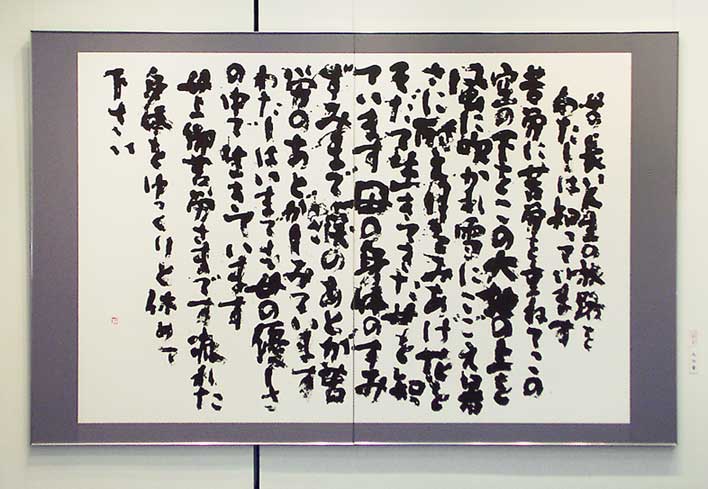 母の長い人生の旅路を
わたしは知っています
苦労に苦労を重ねてこの
空の下をこの大地の上を
風に吹かれ雪にこごえ暑
さに耐え月をみあげ花を
そだて生きてきた母を知っ
ています 母の身体のすみ
ずみまで涙のあとが苦
労のあとがしみています
わたしはいまでも母の優しさ
の中で生きています
母上御苦労さまです疲れた
身体をゆっくりと休めて
下さい